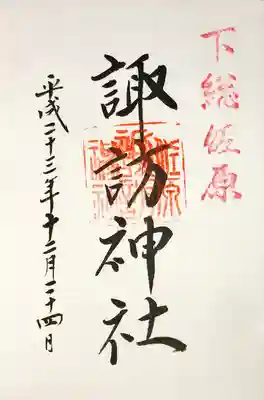 下総佐原
諏訪神社
平成二十三年十二月二十四日